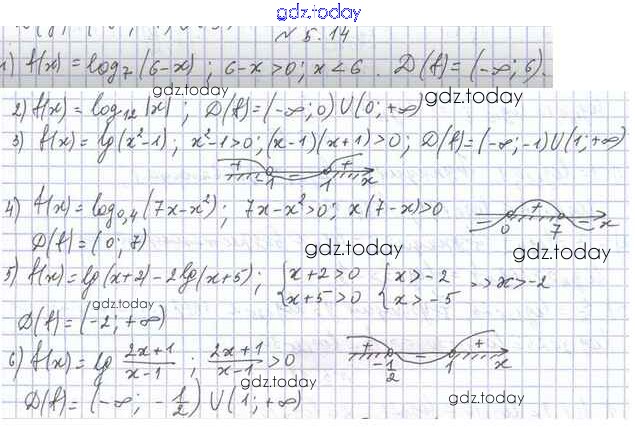 gdz.today
№ 5.14
1) f(x) = log₇(6-x); 6-x>0; x<6. D(f)=(-∞; 6).
gdz.today
2) f(x) = log₁₂|x|; D(f)=(-∞; 0)∪(0; +∞)
3) f(x) = lg(x²-1); x²-1>0; (x-1)(x+1)>0; D(f)=(-∞; -1)∪(1; +∞)
+ -1 - 1 + x
gdz.today
4) f(x) = log₀,₄(7x-x²); 7x-x²>0; x(7-x)>0
- 0 + 7 - x
D(f)=(0; 7)
gdz.today
5) f(x)=lg(x+2)-2lg(x+5); {x+2>0 {x>-2 => x>-2
{x+5>0 {x>-5
gdz.today
D(f)=(-2; +∞)
6) f(x)=lg (2x+1)/(x-1); (2x+1)/(x-1)>0
+ -1/2 - 1 + x
gdz.today
D(f)=(-∞; -1/2)∪(1; +∞)
gdz.today